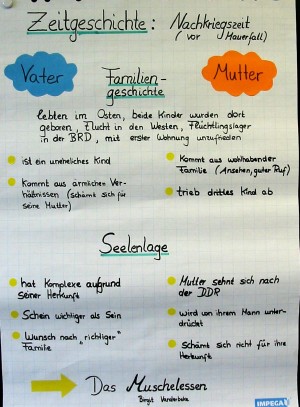 Zeitgeschichte: Nachkriegszeit
(vor Mauerfall)
Vater
Mutter
Familien-
geschichte
lebten im Osten, beide Kinder wurden dort
geboren, Flucht in den Westen, Flüchtlingslager
in der BRD, mit erster Wohnung unzufrieden
ist ein uneheliches Kind
Kommt aus ärmlichen Ver-
hältnissen (schämt sich für
seine Mutter)
Kommt aus wohlhabender
Familie (Ansehen, guter Ruf)
trieb drittes Kind ab
Seelenlage
hat Komplexe aufgrund
seiner Herkunft
Schein wichtiger als Sein
Wunsch nach "richtiger"
Familie
Mutter sehnt sich nach
der DDR
wird von ihrem Mann unter-
drückt
Schämt sich nicht für ihre
Herkunft
Das Muschelessen
Birgit Vanderbeke
IMPEGA